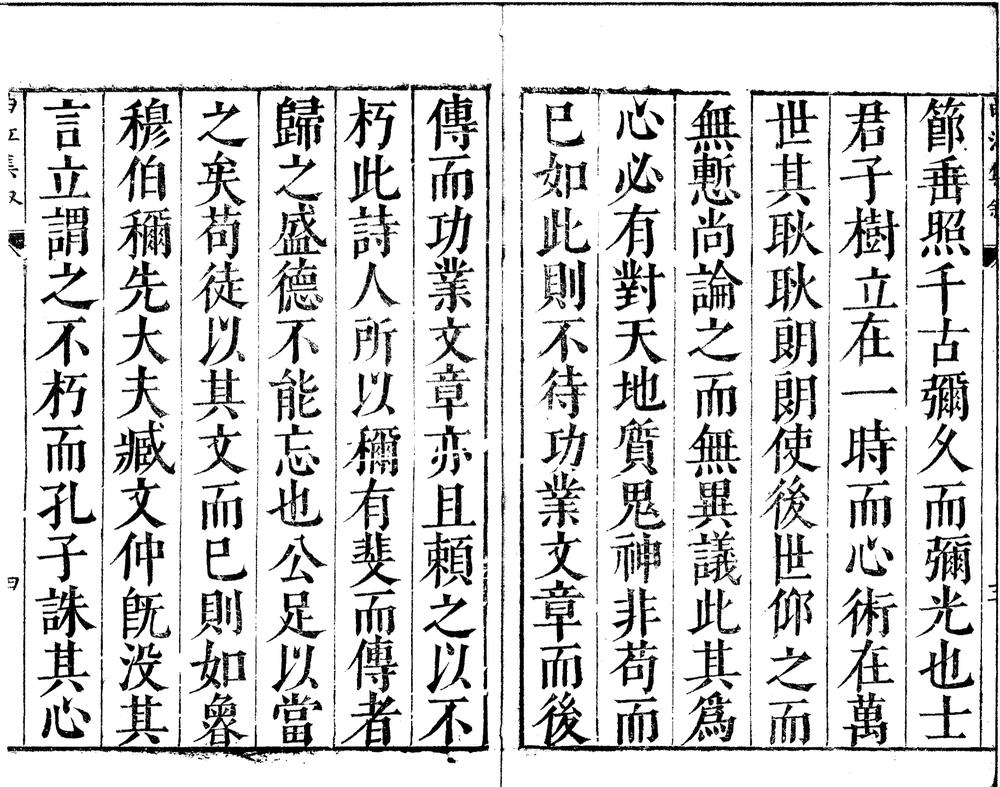 節垂照千古彌久而彌光也士
君子樹立在一時而心術在萬
世其耿耿朗朗使後世仰之而
無慙尚論之而無異議此其爲
心必有對天地質鬼神非苟而
已如此則不待功業文章而後
傳而功業文章亦且賴之以不
朽此詩人所以稱有斐而傳者
歸之盛德不能忘也公足以當
之矣苟徒以其文而已則如魯
穆伯稱先大夫臧文仲旣没其
言立謂之不朽而孔子誅其心